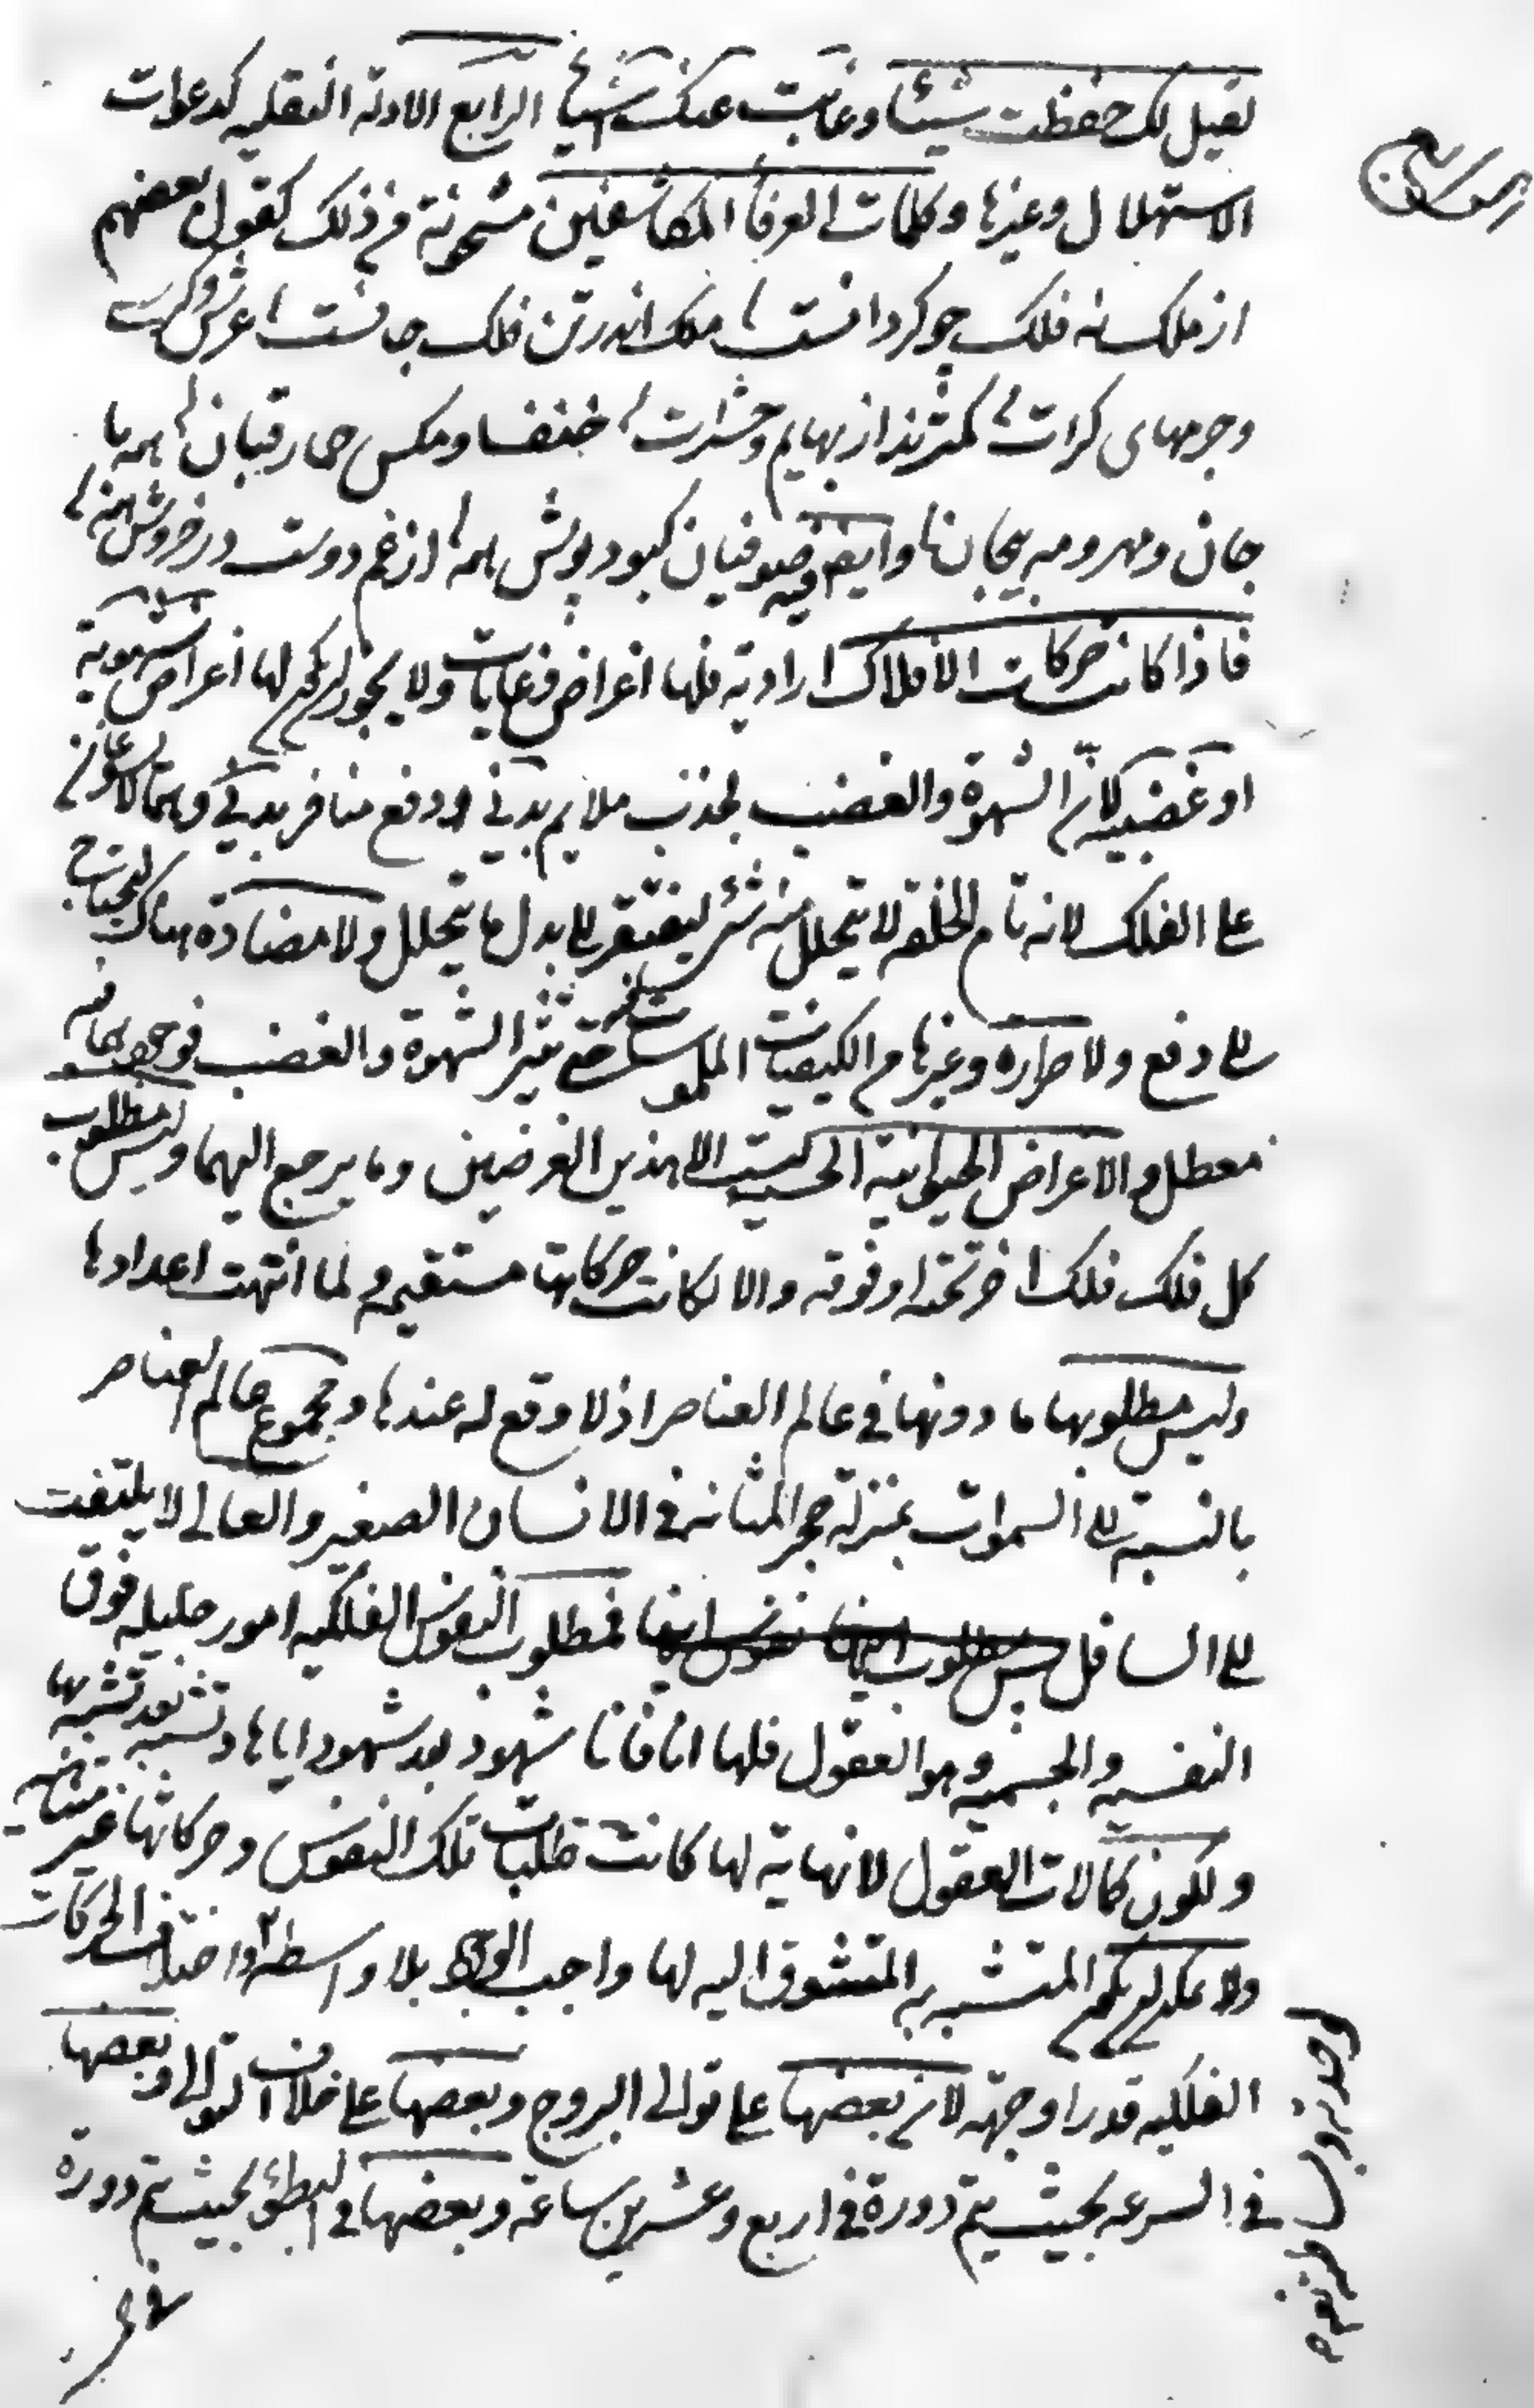 فقيل لك حفظت شيئا وغابت عنك اشياء الرابع الادلة النقليه كدعوات
الاستهلال وغيرها وكلمات العرفا المكاشفين مشحونة من ذلك كقول بعضهم
از ملك نه فلك چو كردانست ملك اندر تن فلك جانست عرش و كرسى
و جرمهاى كرات كمترند از بهايم و حشرات خنفسا و مكس حمار قبان همه با
جان و مهر و مه بيجان وايضا صوفيان كبود پوش همه از غم دوست در خروش همه
فاذا كانت حركات الافلاك ارادية فلها اغراض وغايات ولا يجوز ان يكون لها اغراض شهوية
او غضبيه لان الشهوة والغضب لجذب ملايم بدنى او دفع منافر بدنى وهما لا يجوزان
على الفلك لانه تام الخلقه لا يتحلل منه شىء ليفتقر الى بدل ما يتحلل ولا مضادة هناك ليحتاج
الى دفع ولا حرارة وغيرها من الكيفيات الملموسة حتى تثير الشهوة والغضب فوجودهما فيه
معطل والاغراض الحيوانية الحسيه ليست الا هذين الغرضين وما يرجع اليهما وليس مطلوب
كل فلك فلكا اخر تحته او فوقه والا لكانت حركاتها مستقيمه ولما انتهت اعدادها
وليس مطلوبها ما دونها فى عالم العناصر اذ لا وقع له عندها ومجموع عالم العناصر
بالنسبة الى السموات بمنزلة حجر المثانه فى الانسان الصغير والعالى لا يلتفت
الى السافل فمطلوب النفوس الفلكيه امور جليله فوق
النفسيه والجسميه وهو العقول فلها انا فانا شهود بعد شهود اياها وتشبه بعد تشبه بها
ولكون كمالات العقول لا نهاية لها كانت طلبات تلك النفوس وحركاتها غير متناهيه
ولا يمكن ان يكون المتشبه به المتشوق اليه لها واجب الوجود بلا واسطه واختلاف الحركات
الفلكيه قدرا وجهة لان بعضها على توالى البروج وبعضها على خلاف التوالى وبعضها
فى السرعه بحيث يتم دورة فى اربع وعشرين ساعة وبعضها فى البطؤ بحيث يتم دورة